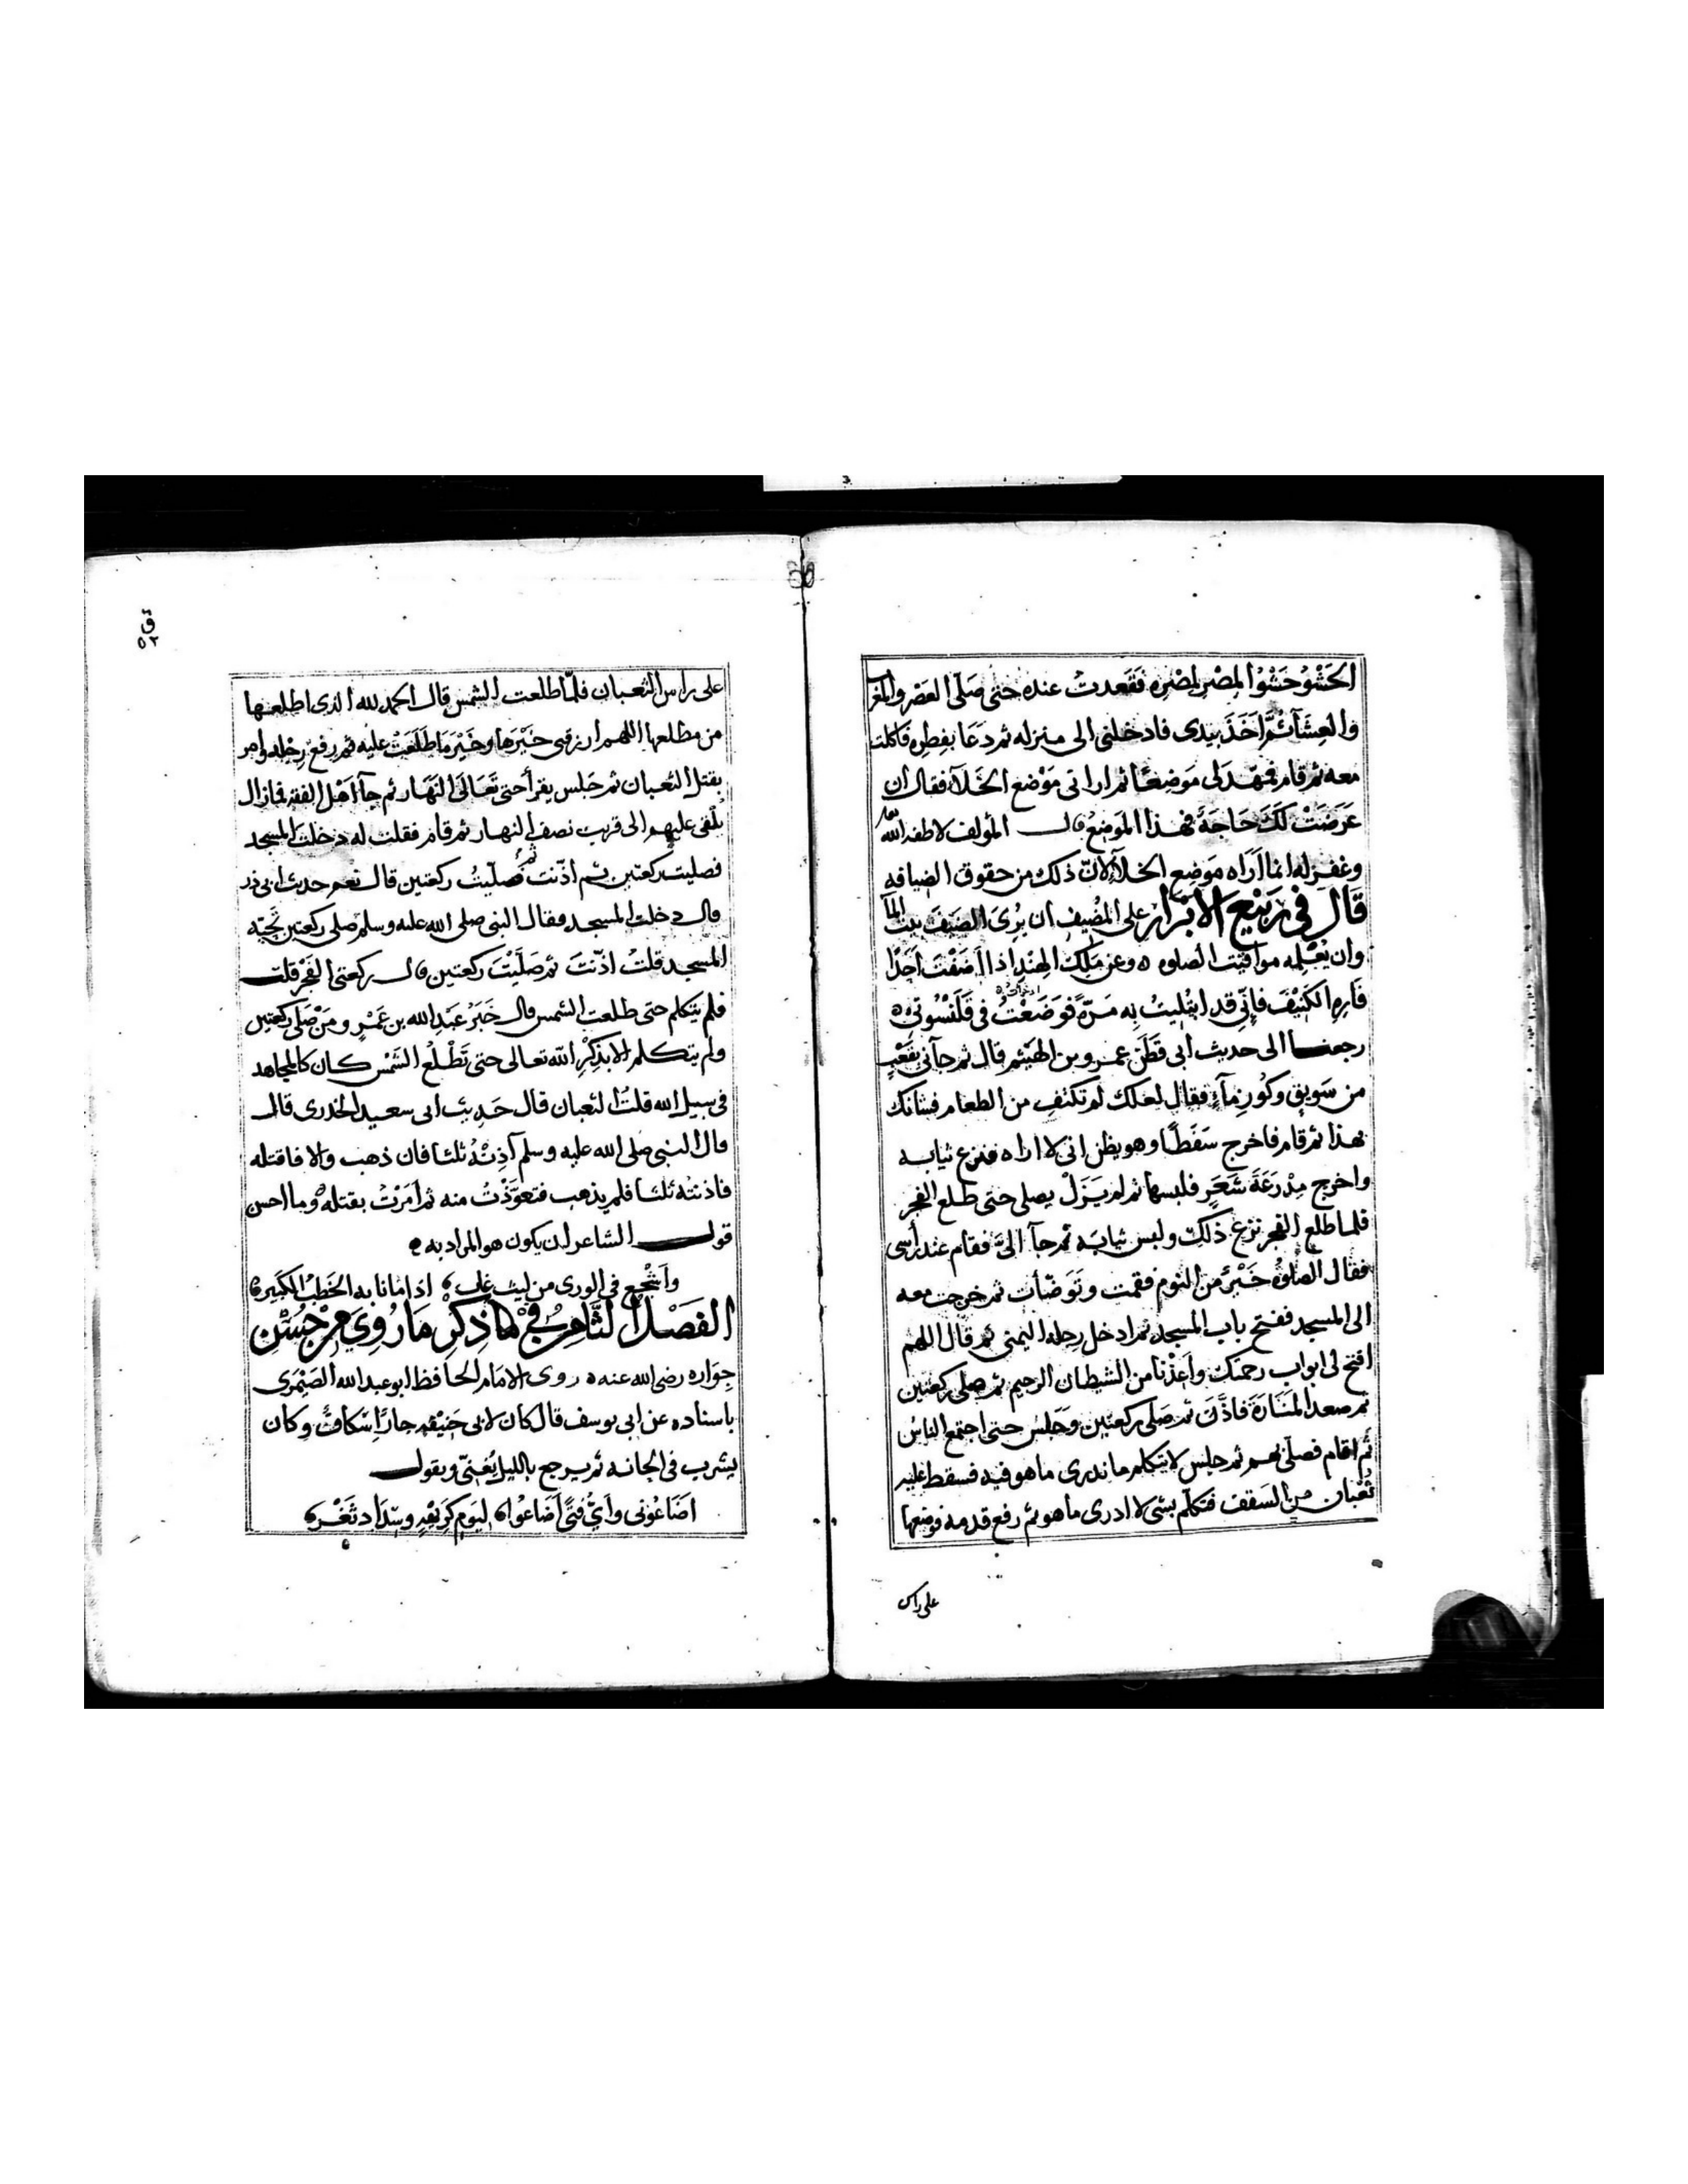 الحَشْوُ حَشْوُ المِصْر لمصْره فقعدتُ عنده حتى صَلّى العصر والمغر
والعِشَآء ثمَّ اَخَذَ بيدى فادخلنى الى منزله ثم دَعَا بفِطِره فاكلت
معه ثم قام فمهّد لى مَوضِعًا ثم ارانى مَوْضع الخَلاَء فقال ان
عَرضَتْ لَكَ حَاجَة فهذا المَوضِعُ قال المؤلف لاطفه الله تعالى
وغفر له انما اَرَاه مَوضِع الخلاَء لانّ ذلك من حقوق الضيافه
قَال فى رَبيْع الابْرَار على المُضِيف ان يُرِى الضيَف بيت المآ
وان يُعْلِمه مواقيت الصلوه ه وعن مَلِك الهِنْد اذا اَضَفْتَ اَحَدًا
فَارِهِ الكَنِيْفَ فَإنّى قد ابتُليتُ بِه مَرّةً فوَضَعْتُ فى قَلَنْسُوتى ه
رجعنا الى حديث ابى قَطَن عمرو بن الهَيثم قال ثم جآنى بقَعْبٍ
من سَويقٍ وكُوزِ مآءٍ فقال لعلك لم تكتفِ من الطعام فشانك
بهذا ثم قام فاخرج سَفَطًا وهو يظن انى لا اراه فنزع ثيابه
واخرج مِدْرَعَةَ شَعَرٍ فلبسها ثم لم يَزَلْ يصلى حتى طلع الفجر
فلما طلع الفجر نزع ذلك ولبس ثيابَه ثم جآ الىّ فقام عند رأسى
فقال الصلوةُ خَيْرٌ من النوم فقمت وتَوَضّأت ثم خرجت معه
الى المسجد ففتح باب المسجد ثم ادخل رجله اليمنى ثم قال اللهم
افتح لى ابواب رحمتك واَعِذْنا من الشيطان الرجيم ثم صلى ركعتين
ثم صعد المَنَارَة فاذّن ثم صَلى ركعتين وجَلسَ حتى اجتمع الناسُ
ثم اقام فصلّى بهم ثم جلس لا يتكلم ما ندرى ما هو فيه فسقط عليه
ثُعْبان من السَقف فتكلّم بشئ لا ادرى ما هو ثم رفع قدمه فوضعها
على راس
ق
٥٢
على راس الثعبان فلمّا طلعت الشمس قال الحمد لله الذى اطلعها
من مطلعها اللهم ارزقنى خَيْرَها وخَيْر مَا طَلَعَتْ عليه ثم رفع رِجْله وامر
بقتل الثعبان ثم جَلس يقرأ حتى تَعَالَى النَهَار ثم جآ اهْل الفقه فما زال
يُلْقى عليهم الى قريب نصف النهار ثم قام فقلت له دخلت المسجد
فصليت ركعتين ثم اذّنت ثم صَلّيتُ ركعتين قال نعم حديث ابى ذر
قال دخلت المسجد فقال النبى صلى الله عليه وسلم صلى ركعتين تحيّة
المسجد قلتُ اذّنتَ ثم صَلّيْتَ ركعتين قال ركعتى الفَجْر قلت
فلم يتكلم حتى طلعت الشمس قال خَبَرُ عَبْد الله بن عَمْرٍ و مَنْ صَلى ركعتين
ولم يتكلم الا بذِكْرِ الله تعالى حتى تَطْلُعَ الشَمْس كان كالمجاهد
فى سبيل الله قلتُ الثعبان قال حَديث ابى سعيد الخدرى قال
قال النبى صلى الله عليه وسلم آذِنْهُ ثلثا فان ذهب والا فاقتله
فاذنته ثلثا فلم يذهب فتعوّذْتُ منه ثم امَرْتُ بقتله ه وما احسن
قول الشاعر ان يكون هو المراد به ه
واَشْجع فى الورى من ليث غاب ه اذا ما نابه الخَطبُ الكَبيره
الفَصْل الثَّامِن فى مَا ذِكْر مَا رُوِيَ مِنْ حُسْنِ
جِوَاره رضى الله عنه ه روى الامَام الحافظ ابو عبد الله الصَيْمَرى
باسناده عن ابى يوسف قال كان لابى حَنِيْفه جارٌ اِسْكافٌ وكان
يشرب فى الحانه ثم يرجع بالليل يُغَنىّ ويقول
اضَاعُونى واَىُّ فتىً اضَاعُوا ه ليَوم كَرِيْهةٍ وسِدَاد ثَغْره